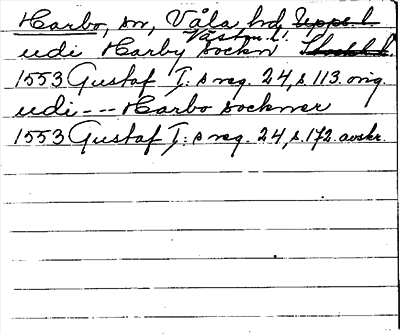 Harbo, sn, Våla hd, Uppl. l.
Västm. l.
udi Harby Sockn Stockh. l.
1553 Gustaf I:s reg. 24, s. 113. orig.
udi --- Harbo sockner
1553 Gustaf I:s reg. 24, s. 172. avskr.